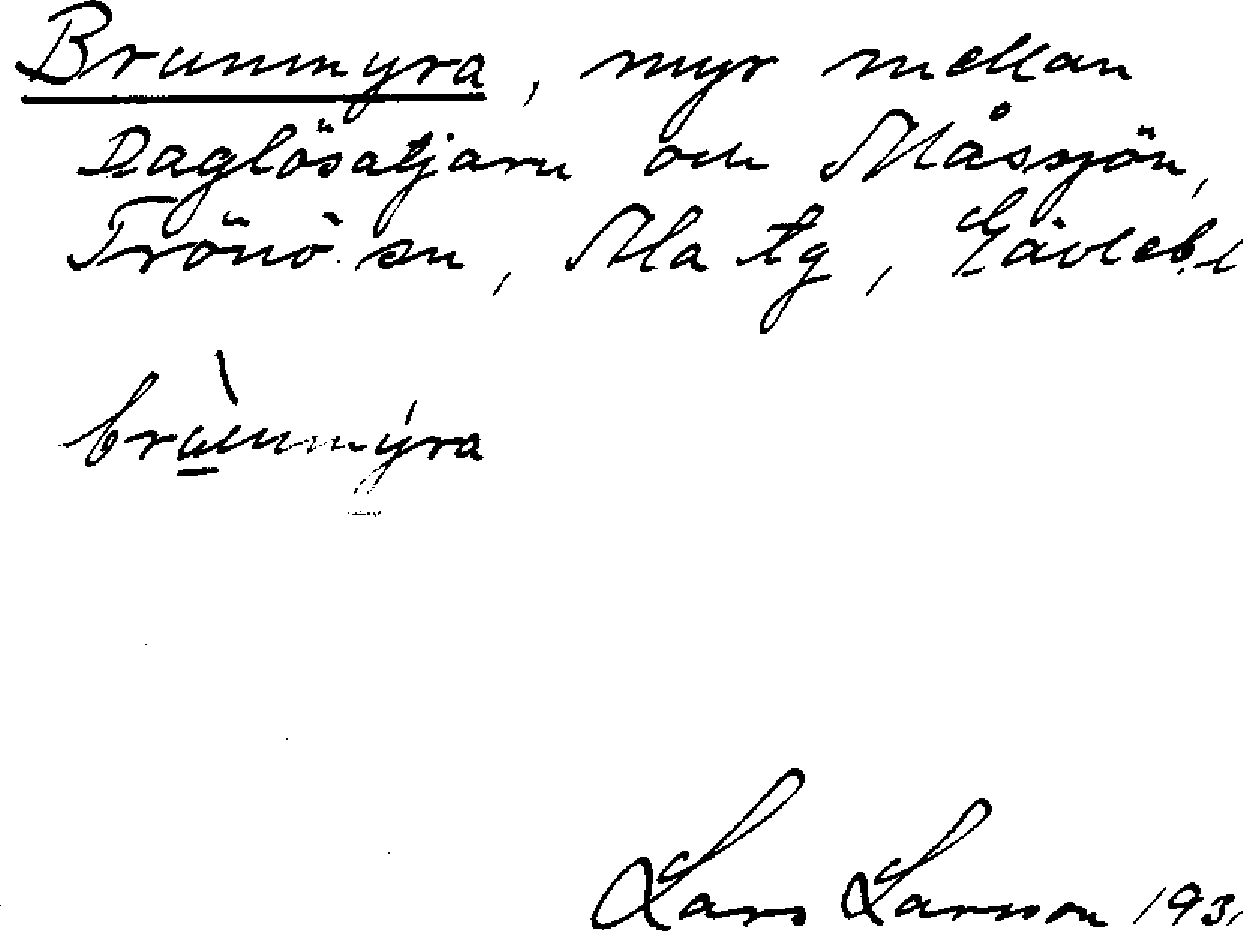 Brunnmyra, myr mellan
Daglösatjärn och Måssjön,
Trönö sn, Ala tg, Gävleb. l
brùnnmýra
Lars Larsson 193